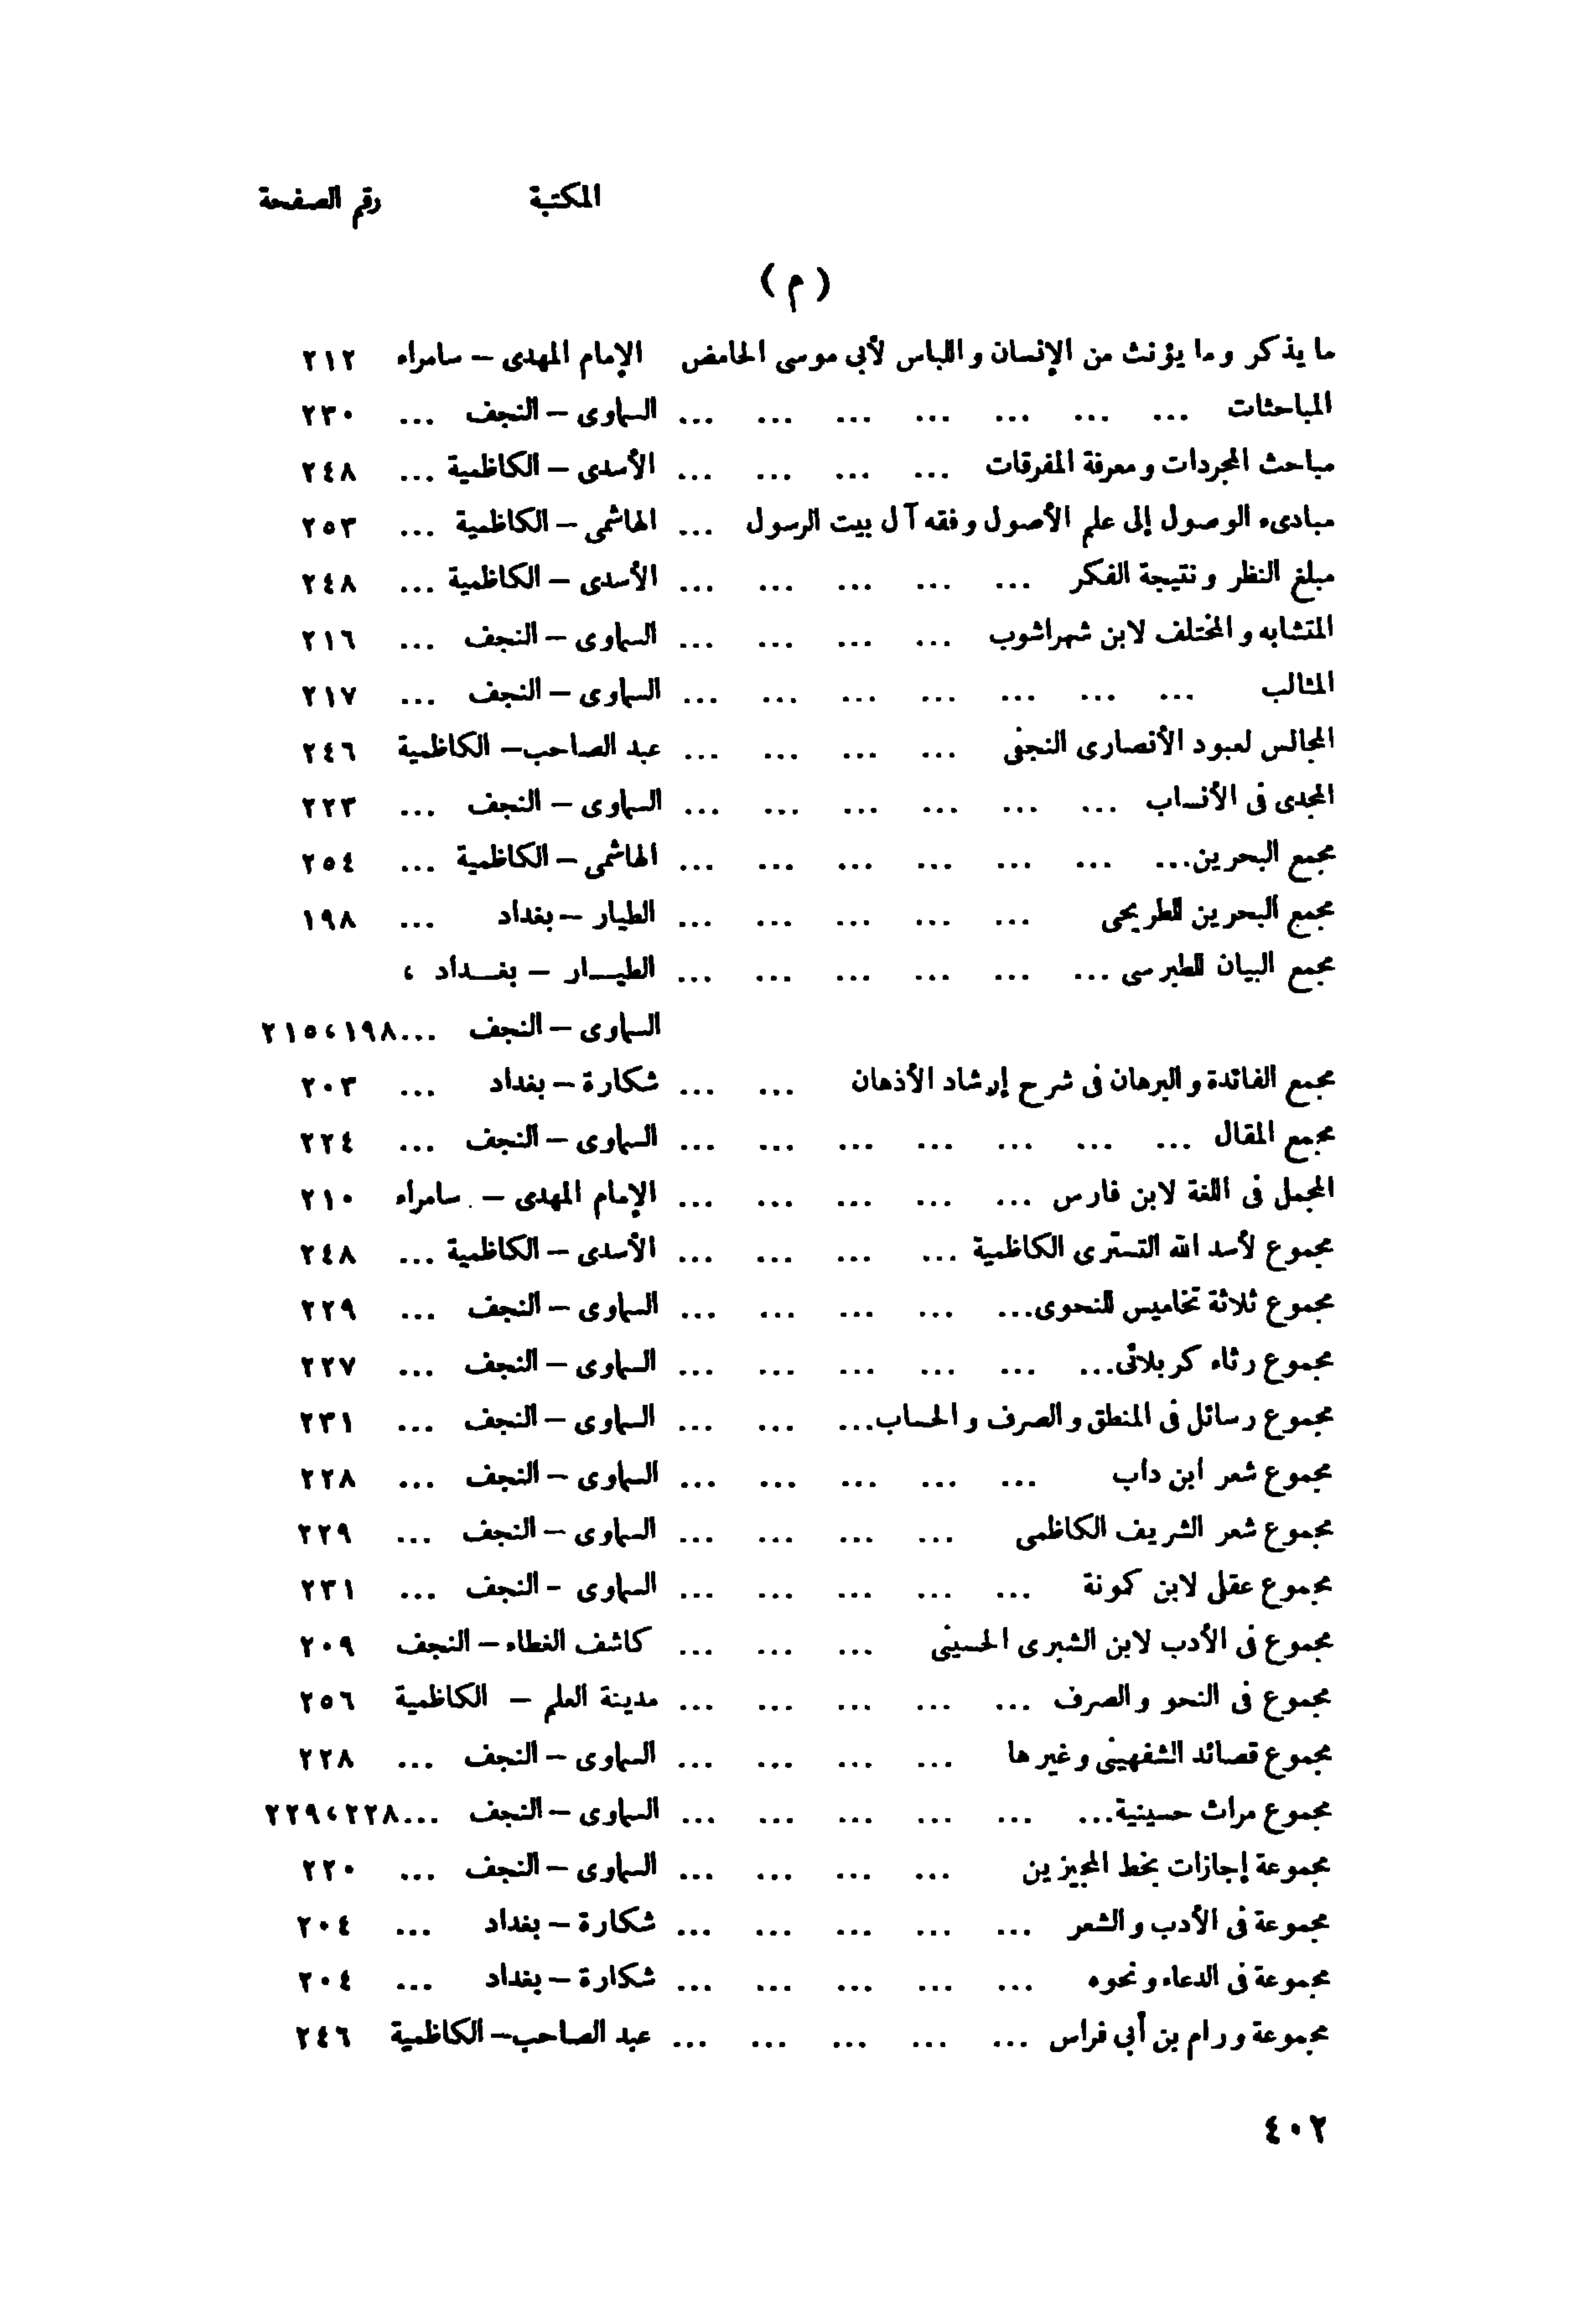 المكتبة رقم الصفحة
( م )
ما يذكر وما يؤنث من الإنسان واللباس لأبى موسى الحامض الإمام المهدى – سامراء ٢١٢
المباحثات ... ... ... ... ... ... ... السماوى – النجف ... ٢٣٠
مباحث المجردات ومعرفة المفرقات ... ... ... ... الأسدى – الكاظمية ... ٢٤٨
مبادىء الوصول إلى علم الأصول وفقه آل بيت الرسول ... الهاشمى – الكاظمية ... ٢٥٣
مبلغ النظر ونتيجة الفكر ... ... ... ... ... الأسدى – الكاظمية ... ٢٤٨
المتشابه والمختلف لابن شهراشوب ... ... ... ... السماوى – النجف ... ٢١٦
المثالب ... ... ... ... ... ... ... السماوى – النجف ... ٢١٧
المجالس لعبود الأنصارى النجفى ... ... ... ... عبد الصاحب – الكاظمية ٢٤٦
المجدى فى الأنساب ... ... ... ... ... ... السماوى – النجف ... ٢٢٣
مجمع البحرين... ... ... ... ... ... ... الهاشمى – الكاظمية ... ٢٥٤
مجمع البحرين للطريحى ... ... ... ... ... الطيار – بغداد ... ١٩٨
مجمع البيان للطبرسى ... ... ... ... ... ... الطيـــار – بغـــداد ،
السماوى – النجف ...١٩٨،٢١٥
مجمع الفائدة والبرهان فى شرح إرشاد الأذهان ... ... شكارة – بغداد ... ٢٠٣
مجمع المقال ... ... ... ... ... ... ... السماوى – النجف ... ٢٢٤
المجمل فى اللغة لابن فارس ... ... ... ... ... الإمام المهدى – سامراء ٢١٠
مجموع لأسد الله التسترى الكاظمية ... ... ... ... الأسدى – الكاظمية ... ٢٤٨
مجموع ثلاثة تخاميس للنحوى... ... ... ... ... السماوى – النجف ... ٢٢٩
مجموع رثاء كربلائى... ... ... ... ... ... السماوى – النجف ... ٢٢٧
مجموع رسائل فى المنطق والصرف والحساب... ... ... السماوى – النجف ... ٢٣١
مجموع شعر ابن داب ... ... ... ... ... السماوى – النجف ... ٢٢٨
مجموع شعر الشريف الكاظمى ... ... ... ... السماوى – النجف ... ٢٢٩
مجموع عقلى لابن كمونة ... ... ... ... ... السماوى - النجف ... ٢٣١
مجموع فى الأدب لابن الشبرى الحسينى ... ... ... كاشف الغطاء – النجف ٢٠٩
مجموع فى النحو والصرف ... ... ... ... ... مدينة العلم – الكاظمية ٢٥٦
مجموع قصائد الشفهينى وغيرها ... ... ... ... السماوى – النجف ... ٢٢٨
مجموع مراث حسينية... ... ... ... ... ... السماوى – النجف ...٢٢٨،٢٢٩
مجموعة إجازات بخط المجيزين ... ... ... ... السماوى – النجف ... ٢٢٠
مجموعة فى الأدب والشعر ... ... ... ... ... شكارة – بغداد ... ٢٠٤
مجموعة فى الدعاء ونحوه ... ... ... ... ... شكارة – بغداد ... ٢٠٤
مجموعة ورام بن أبى فراس ... ... ... ... ... عبد الصاحب – الكاظمية ٢٤٦
٤٠٢